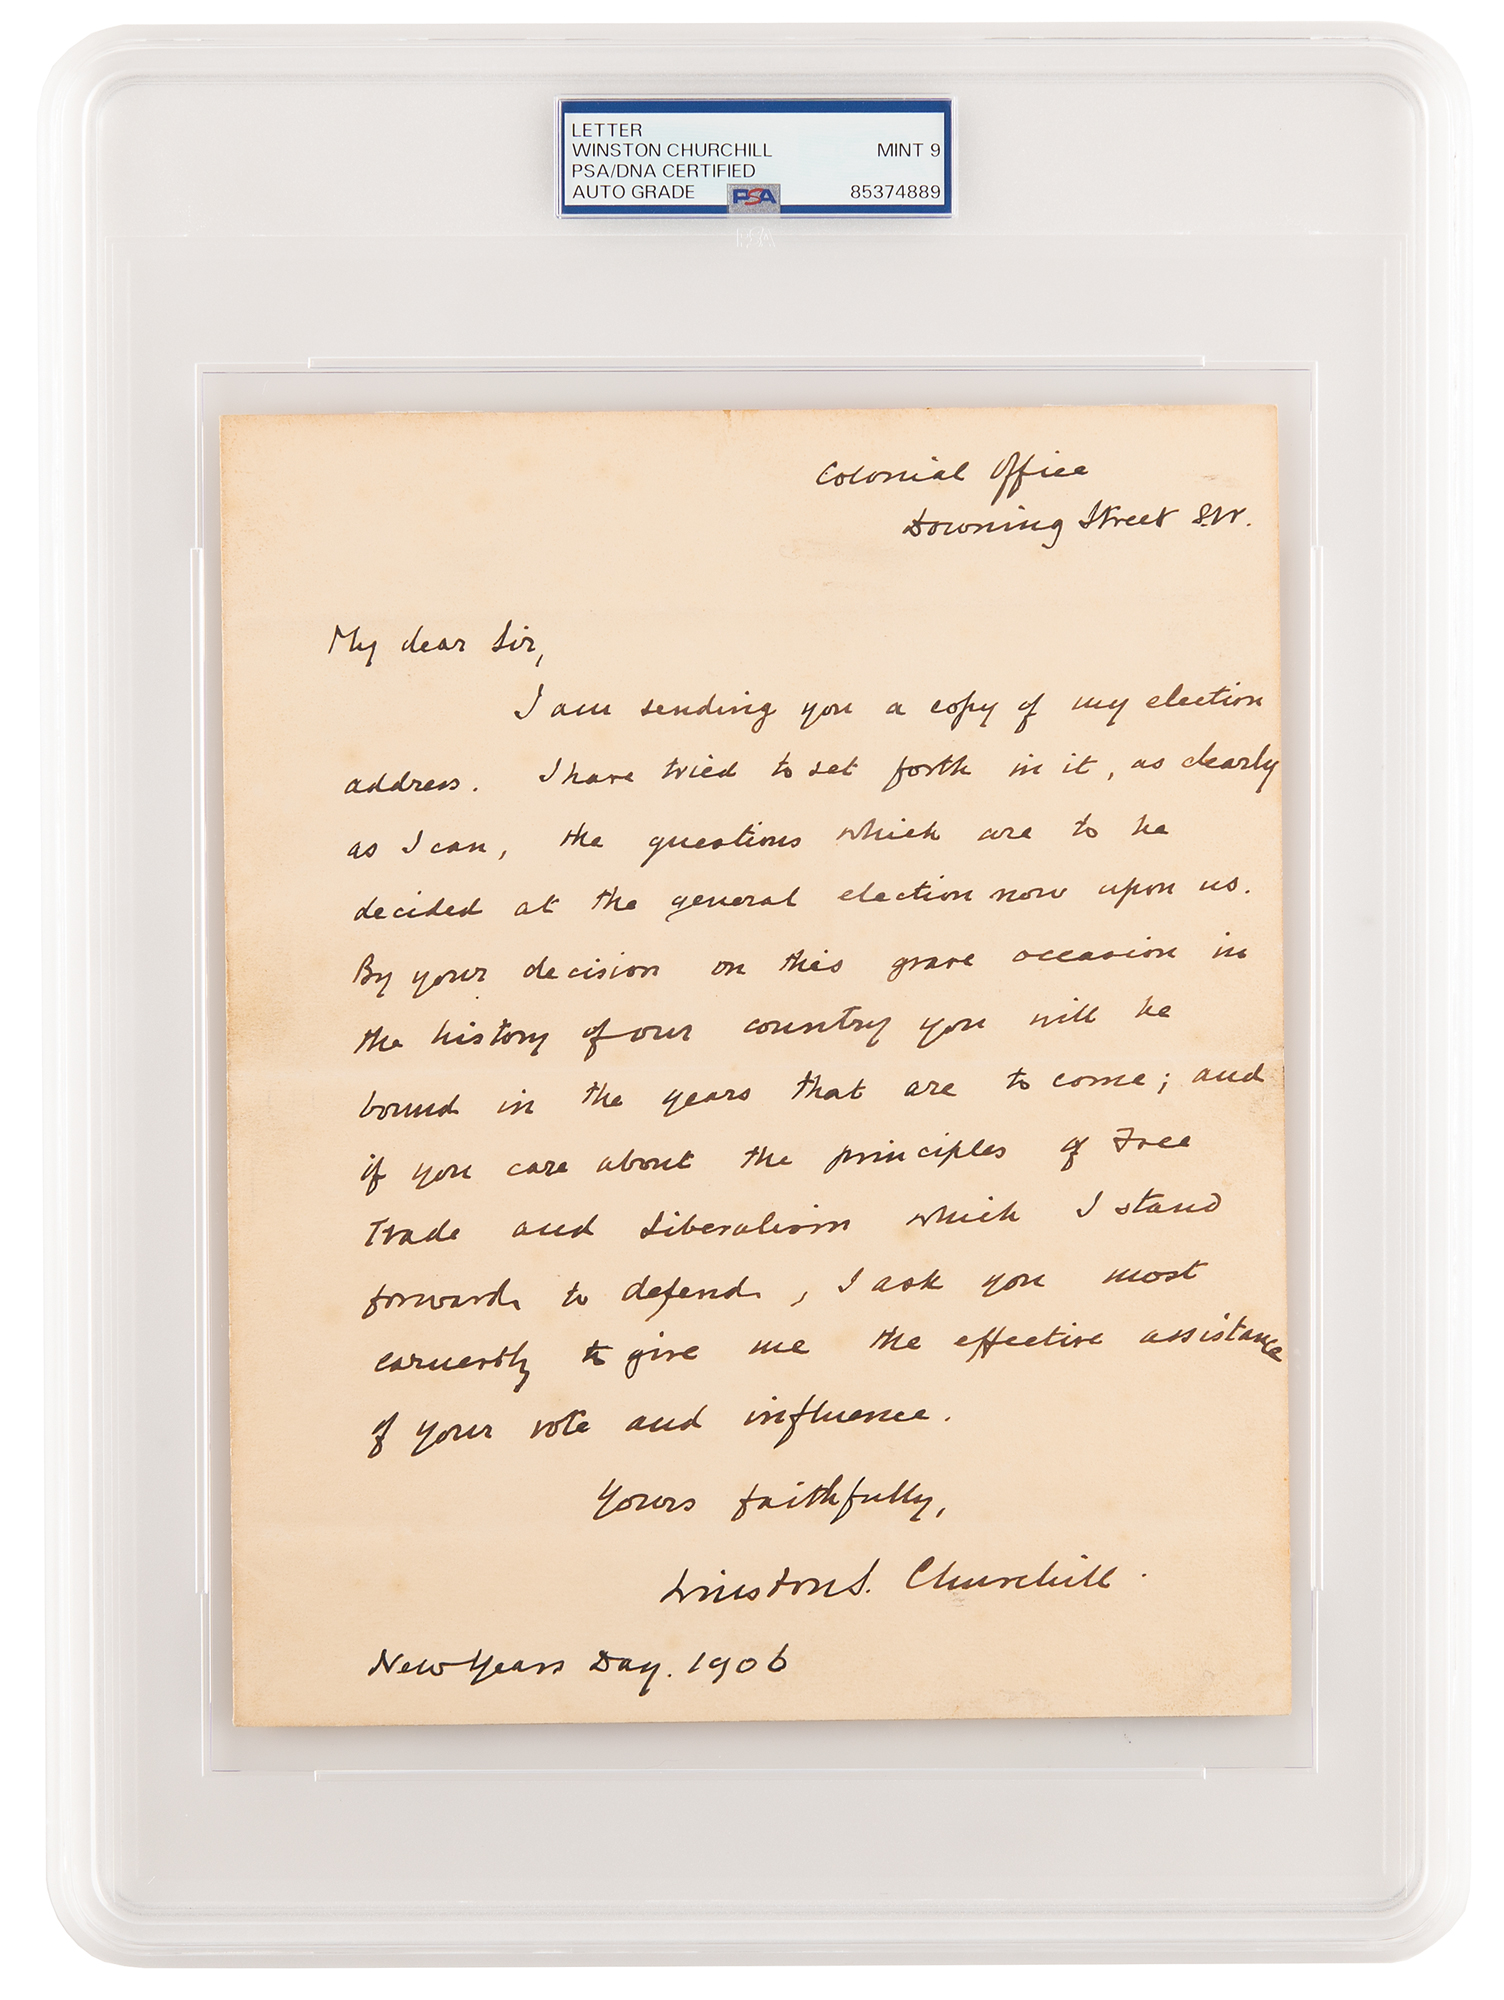 LETTER
WINSTON CHURCHILL MINT 9
PSA/DNA CERTIFIED
AUTO GRADE PSA 85374889
PSA
Colonial Office
Downing Street S.W.
My dear Sir,
I am sending you a copy of my election
address. I have tried to set forth in it, as clearly
as I can, the questions which are to be
decided at the general election now upon us.
By your decision on this grave occasion in
the history of our country you will be
bound in the years that are to come; and
if you care about the principles of Free
Trade and Liberalism which I stand
forward to defend, I ask you most
earnestly to give me the effective assistance
of your vote and influence.
Yours faithfully,
Winston S. Churchill.
New Years Day. 1906